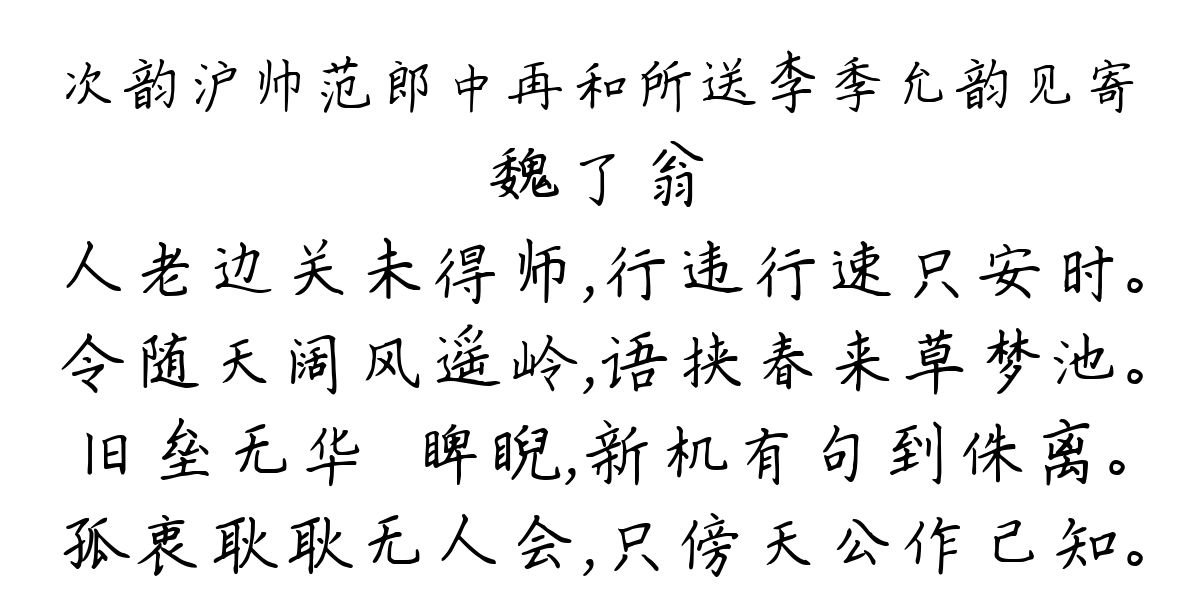 次韵沪帅范郎中再和所送李季允韵见寄
魏了翁
人老边关未得师,行违行速只安时。
令随天阔风遥岭,语挟春来草梦池。
旧垒无华 睥睨,新机有句到侏离。
孤衷耿耿无人会,只傍天公作己知。